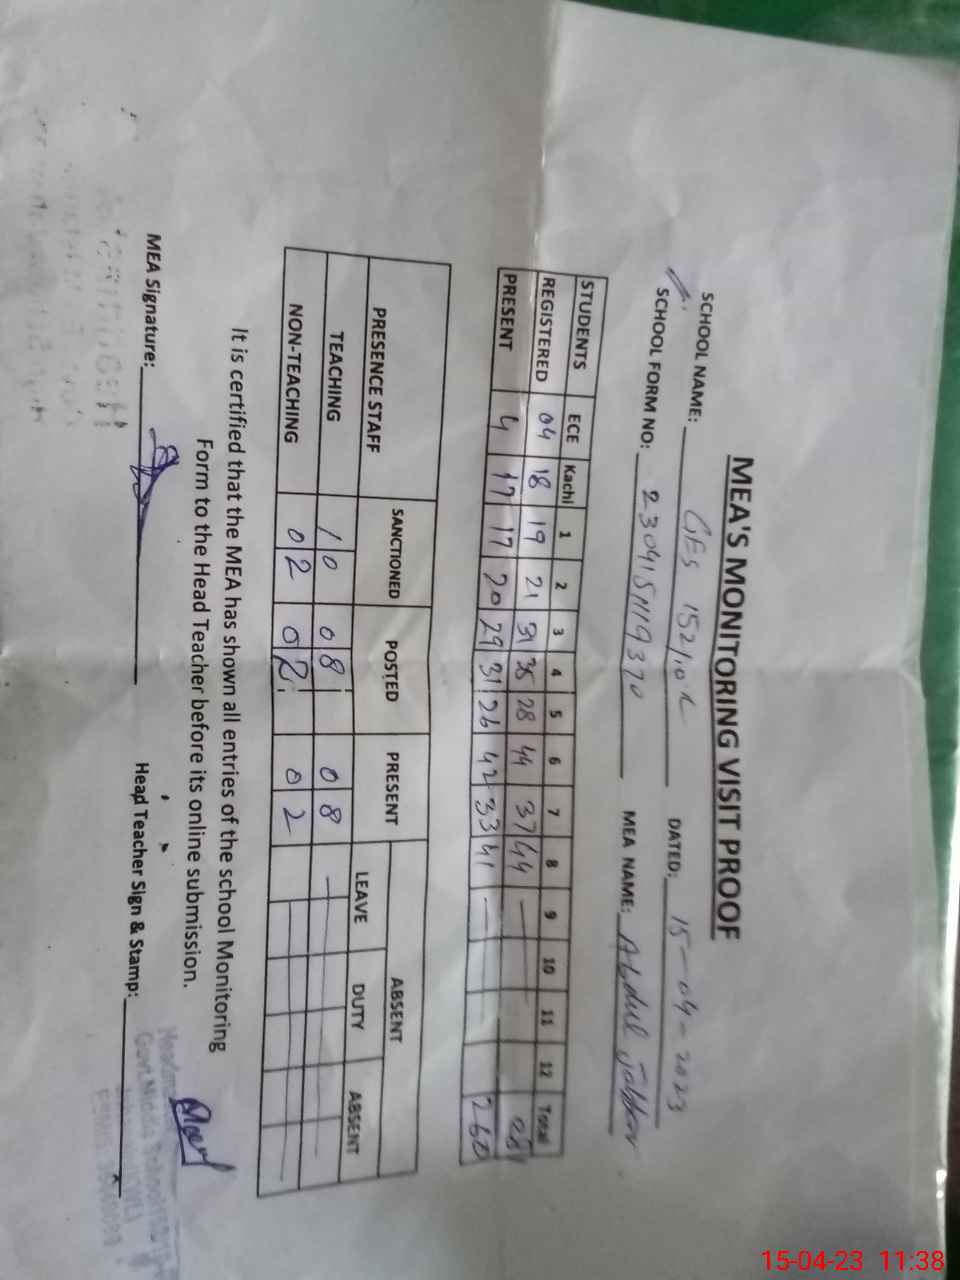 MEA'S MONITORING VISIT PROOF
SCHOOL NAME: GES 152/10R DATED: 15-04-2023
SCHOOL FORM NO: MEA NAME: Abdul Jabbar
STUDENTS ECE Kachi 1 2 3 4 5 6 7 8 9 10 11 12 Total
REGISTERED 04 18 19 21 31 35 28 44 37 44 —
PRESENT 4 17 17 20 29 31 26 42 33 41 — 260
PRESENCE STAFF SANCTIONED POSTED PRESENT ABSENT
LEAVE DUTY ABSENT
TEACHING 10 08 08 —
NON-TEACHING 02 02 02
It is certified that the MEA has shown all entries of the school Monitoring
Form to the Head Teacher before its online submission.
MEA Signature: Head Teacher Sign & Stamp:
15-04-23 11:38